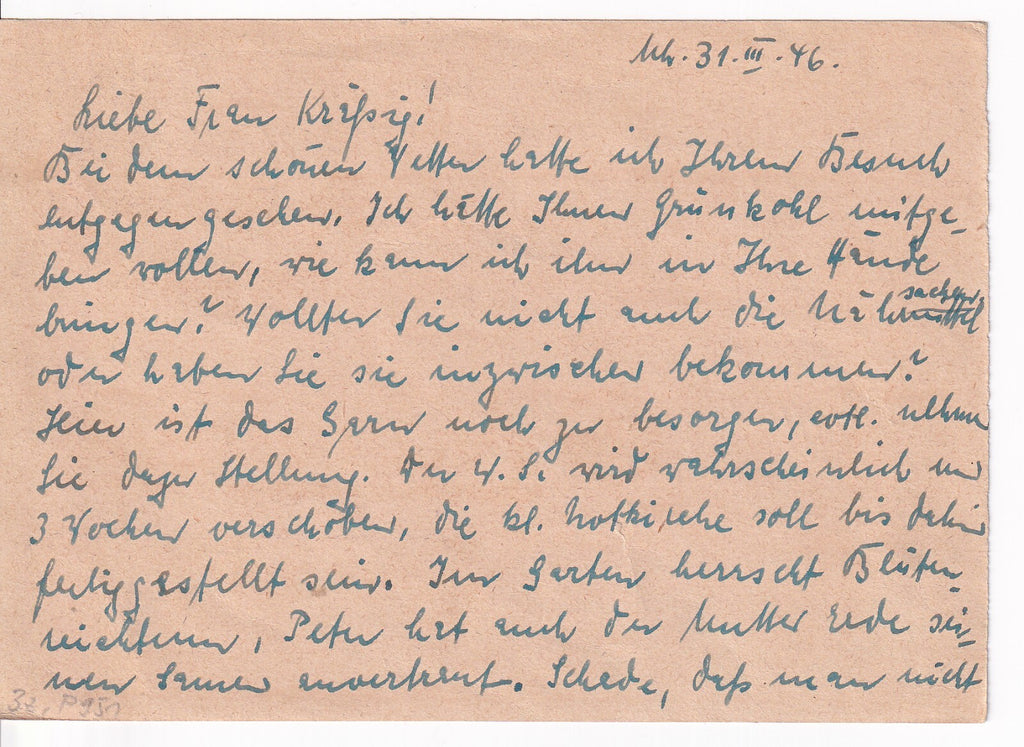 31. III. 46.
Liebe Frau Kräßig!
Bei dem schönen Wetter hatte ich Ihrem Besuch
entgegengesehen. Ich hätte Ihnen Grünkohl mitge-
ben wollen, wie kann ich ihn in Ihre Hände
bringen? Wollten Sie nicht auch die Nähmittel sachen
oder haben Sie sie inzwischen bekommen?
Hier ist das Garn noch zu besorgen, evtl. nehmen
Sie dazu Stellung. Der W. S. wird wahrscheinlich um
3 Wochen verschoben, die kl. Notkirche soll bis dahin
fertiggestellt sein. Im Garten herrscht Blüten-
reichtum, Peter hat auch der Mutter Erde sei-
nen Samen anvertraut. Schade, daß man nicht